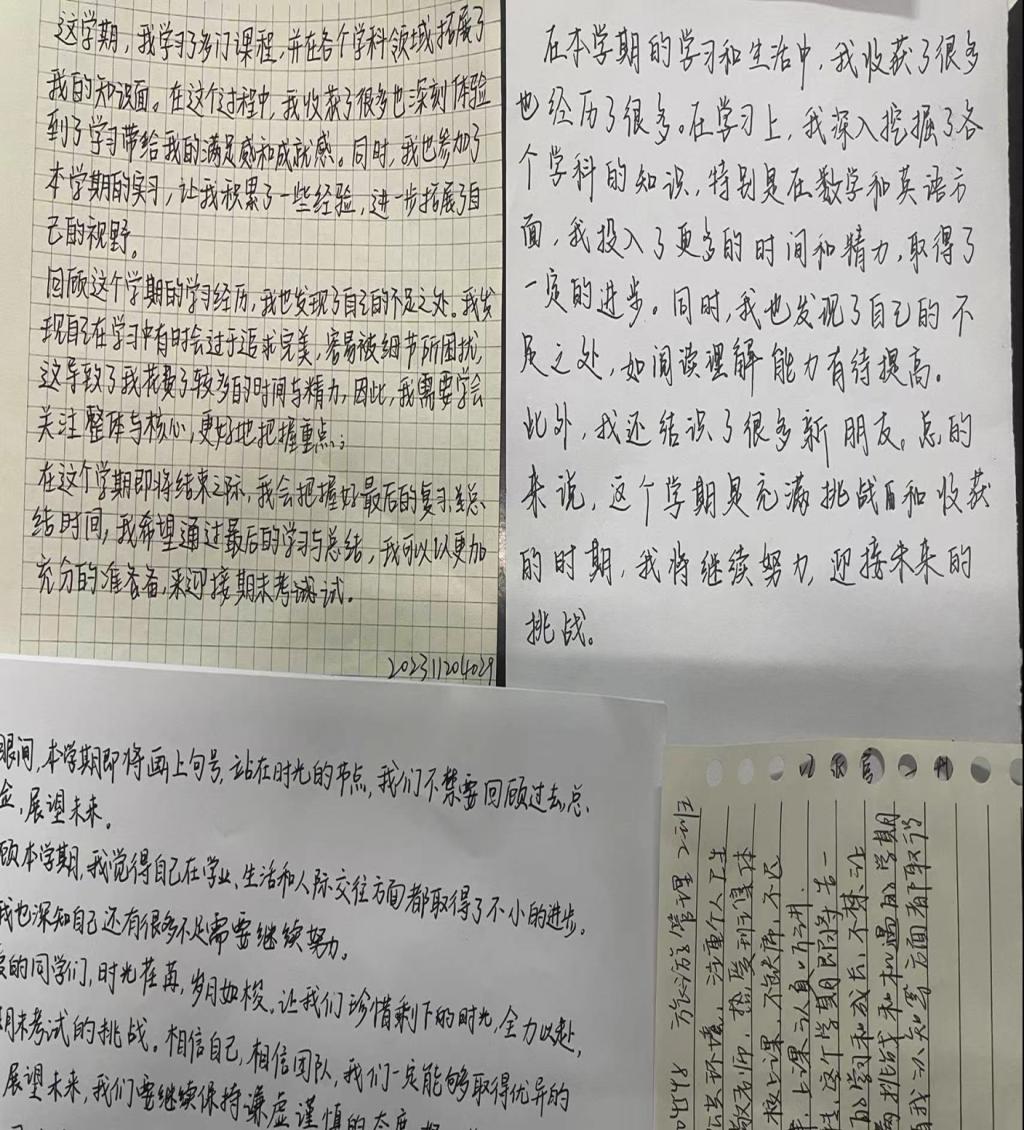 这学期，我学习了多门课程，并在各个学科领域拓展了
我的知识面。在这个过程中，我收获了很多也深刻体验
到了学习带给我的满足感和成就感。同时，我也参加了
本学期的实习，让我积累了一些经验，进一步拓展了自
己的视野。
回顾这个学期的学习经历，我也发现了自己的不足之处。我发
现自己在学习中有时会过于追求完美，容易被细节所困扰，
这导致了我花费了较多的时间与精力，因此，我需要学会
关注整体与核心，更好地把握重点。
在这个学期即将结束之际，我会把握好最后的复习总
结时间，我希望通过最后的学习与总结，我可以以更加
充分的准备，来迎接期末考试。
202311204029
在本学期的学习和生活中，我收获了很多
也经历了很多。在学习上，我深入挖掘了各
个学科的知识，特别是在数学和英语方
面，我投入了更多的时间和精力，取得了
一定的进步。同时，我也发现了自己的不
足之处，如阅读理解能力有待提高。
此外，我还结识了很多新朋友。总的
来说，这个学期是充满挑战和收获
的时期，我将继续努力，迎接未来的
挑战。
眼间，本学期即将画上句号，站在时光的节点，我们不禁要回顾过去，总
，展望未来。
顾本学期，我觉得自己在学业、生活和人际交往方面都取得了不小的进步。
我也深知自己还有很多不足需要继续努力。
的同学们，时光荏苒，岁月如梭。让我们珍惜剩下的时光，全力以赴，
期末考试的挑战。相信自己，相信团队，我们一定能够取得优异的
展望未来，我们要继续保持谦虚谨慎的态度
旅游管理2班
环境，注重个人卫生
敬老师，
上课，不缺席，不迟
，上课认真听讲.
，这个学期即将告一
的学习和成长，不禁让
满挑战和机遇的学期
自我认知等方面都取得